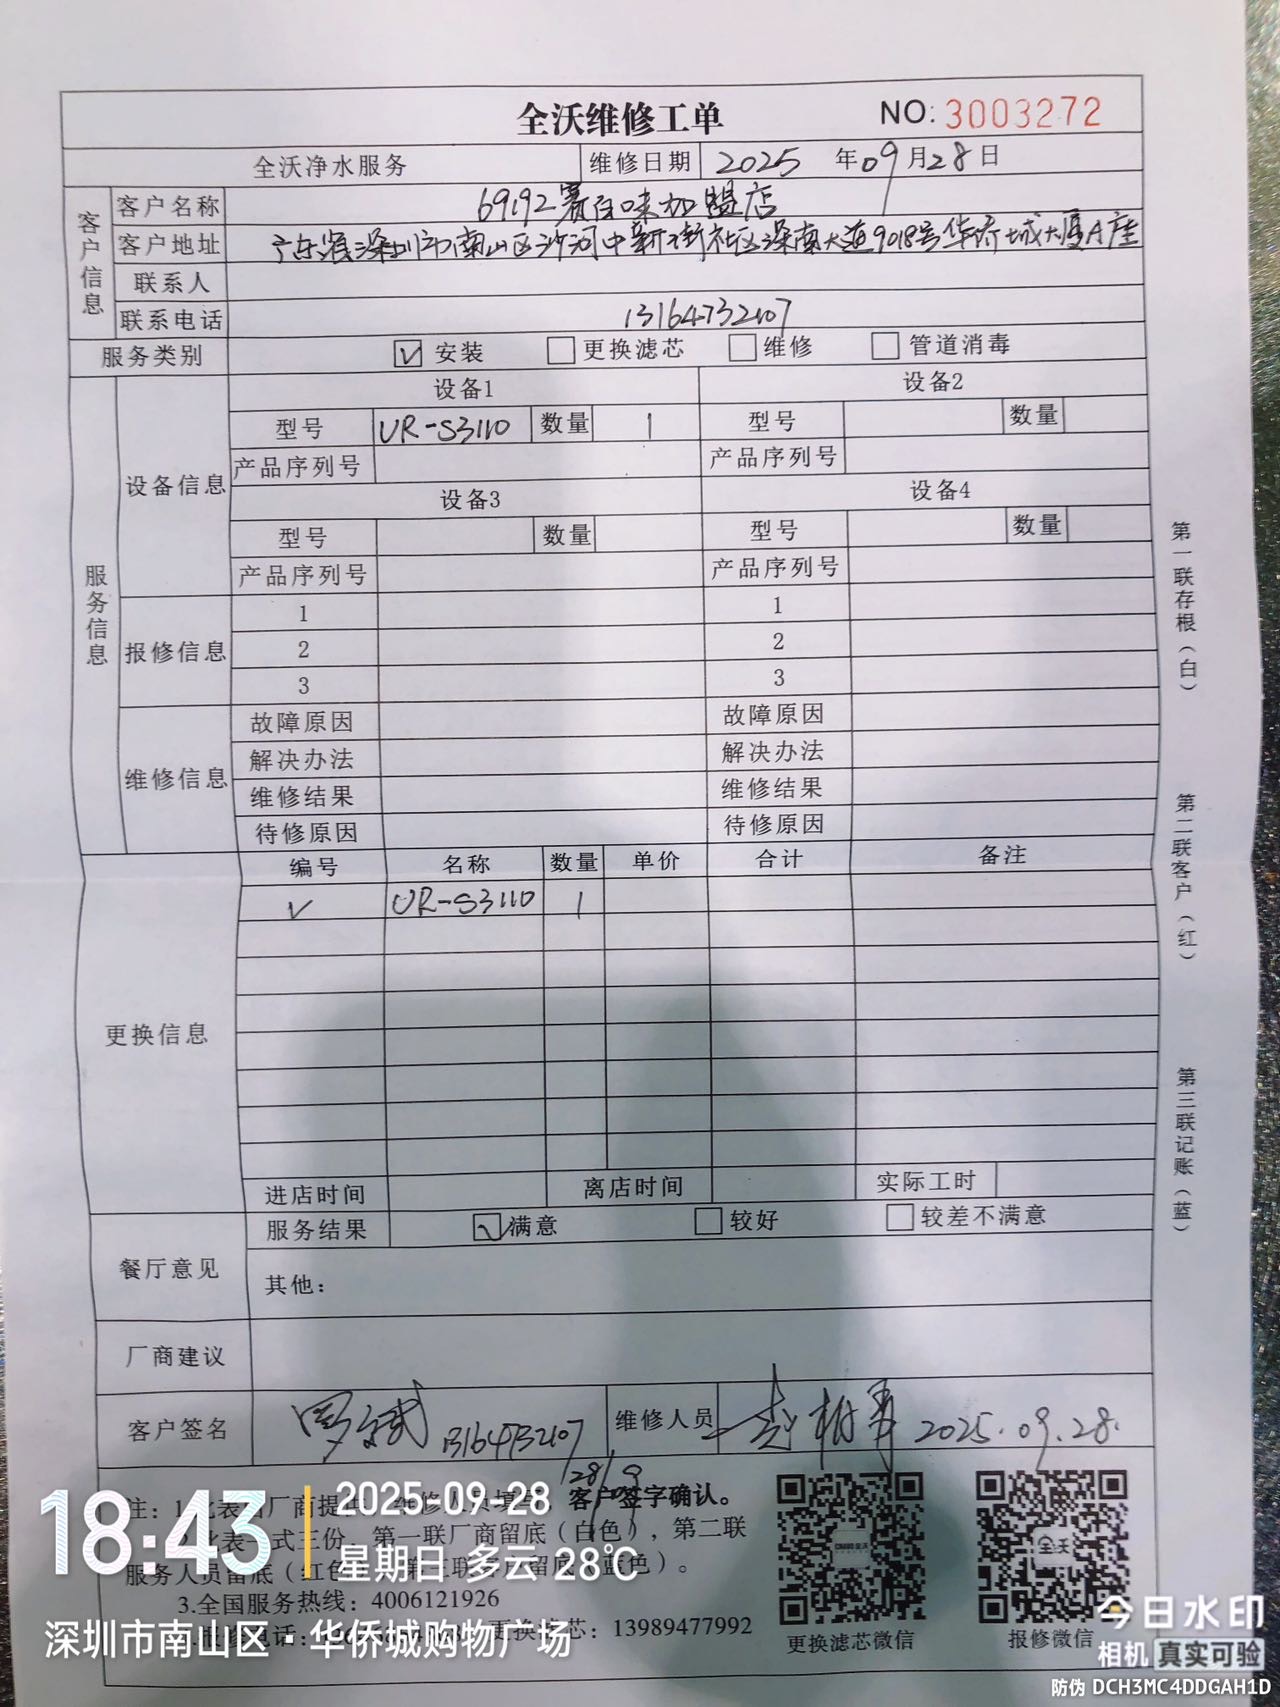 全沃维修工单
NO: 3003272
全沃净水服务 维修日期 2025 年 09 月 28 日
客户信息
客户名称 69192赛百味加盟店
客户地址 广东省深圳市南山区沙河中新街社区深南大道9018号华侨城大厦A座
联系人
联系电话 13164732107
服务类别 安装 更换滤芯 维修 管道消毒
服务信息
设备信息
设备1 设备2
型号 UR-S3110 数量 1 型号 数量
产品序列号 产品序列号
设备3 设备4
型号 数量 型号 数量
产品序列号 产品序列号
报修信息
1 1
2 2
3 3
维修信息
故障原因 故障原因
解决办法 解决办法
维修结果 维修结果
待修原因 待修原因
更换信息
编号 名称 数量 单价 合计 备注
✓ UR-S3110 1
进店时间 离店时间 实际工时
餐厅意见
服务结果 满意 较好 较差不满意
其他：
厂商建议
客户签名 13164732107
28/9
维修人员 2025.09.28.
第一联存根（白）
第二联客户（红）
第三联记账（蓝）
客户签字确认。
此表一式三份，第一联厂商留底（白色），第二联
服务人员留底（红色
蓝色）。
3.全国服务热线：4006121926
更换滤芯：13989477992
更换滤芯微信
报修微信
全沃
18:43
2025-09-28
星期日 多云 28℃
深圳市南山区·华侨城购物广场
今日水印
相机 真实可验
防伪 DCH3MC4DDGAH1D